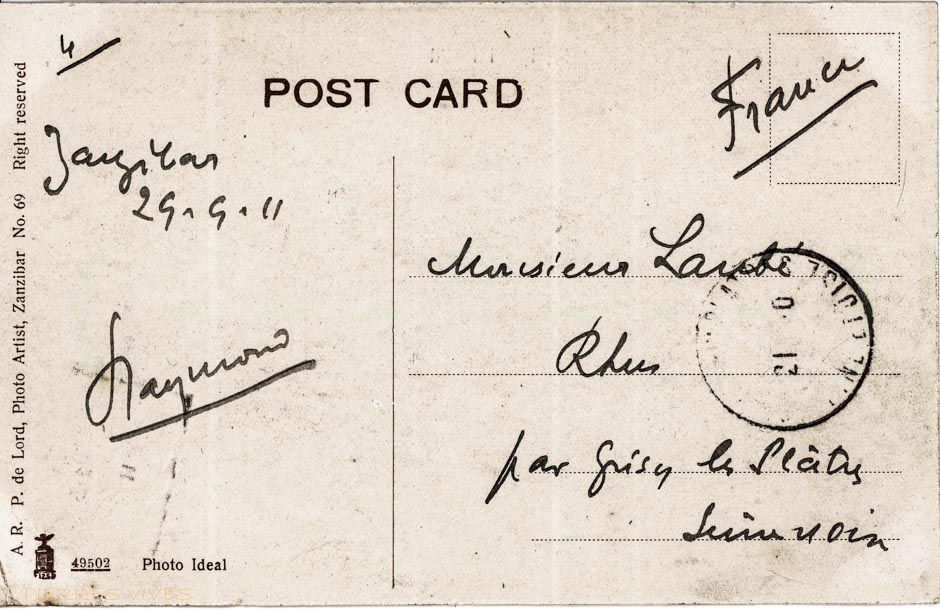 4
POST CARD
France
Zanzibar
29.9.11
Raymond
Monsieur Laubé
Rhus
par Grisy les Plâtres
Seine & Oise
A. R. P. de Lord, Photo Artist, Zanzibar No. 69 Right reserved
49502 Photo Ideal
PIERRES VIVES